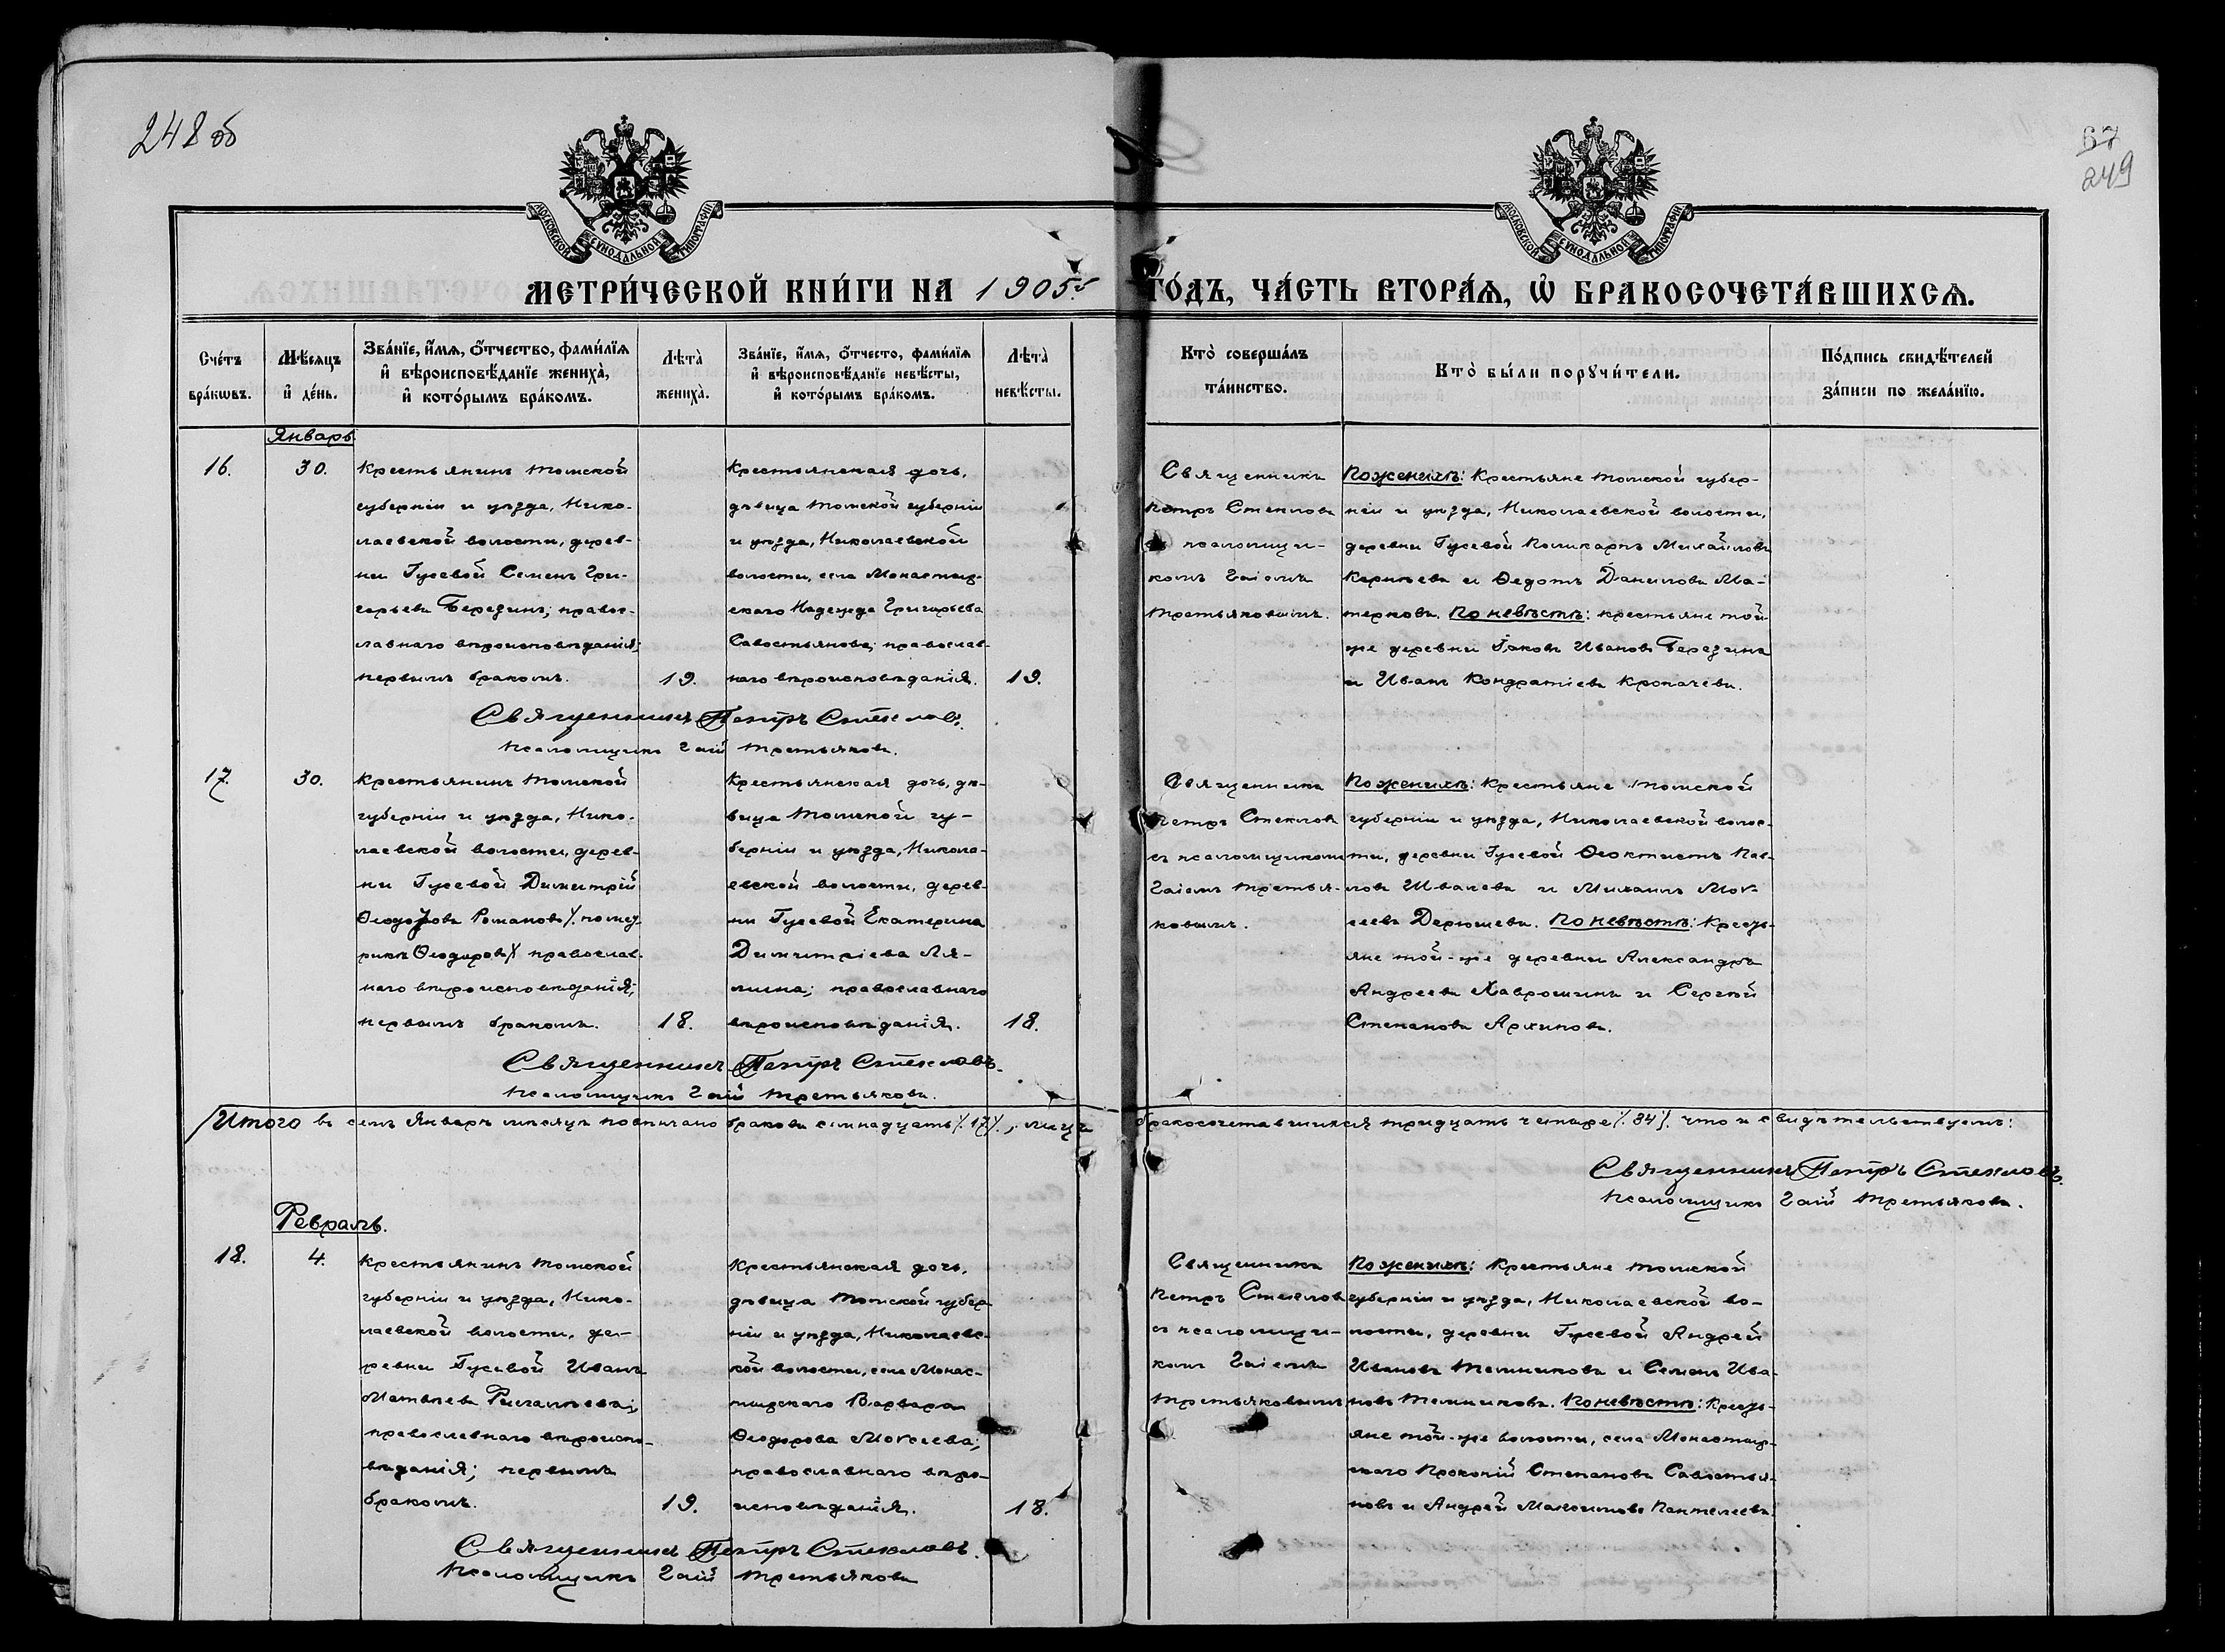 248 об
67
249
МОСКОВСКОЙ СУНОДАЛЬНОЙ ТИПОГРАФІИ
МОСКОВСКОЙ СУНОДАЛЬНОЙ ТИПОГРАФІИ
МЕТРИ́ЧЕСКОЙ КНИ́ГИ НА 1905 ГО́ДЪ, ЧА́СТЬ ВТОРА́Ѧ, Ѡ҆ БРАКОСОЧЕТА́ВШИХСѦ.
Сче́тъ
бра́кѡвъ.
Мѣ́сяцъ
и҆ де́нь.
Зва́нїе, и҆́мѧ, ѻ҆́тчество, фами́лїѧ
и҆ вѣроисповѣ́данїе жениха̀,
и҆ кото́рымъ бра́комъ.
Лѣта̀
жениха̀.
Зва́нїе, и҆́мѧ, ѻ҆́тчесто, фами́лїѧ
и҆ вѣроисповѣ́данїе невѣ́сты,
и҆ кото́рымъ бра́комъ.
Лѣта̀
невѣ́сты.
Кто̀ соверша́лъ
та́инство.
Кто̀ бы́ли порꙋчи́тели.
По́дпись свидѣ́телей
за́писи по жела́нїю.
Январь
16.
30.
Крестьянинъ Томской
губерніи и уѣзда, Нико-
лаевской волости, дерев-
ни Гусевой Семенъ Гри-
горьевъ Березинъ; правос-
лавнаго вѣроисповѣданія;
первымъ бракомъ.
19.
Крестьянская дочь,
дѣвица Томской губерніи
и уѣзда, Николаевской
волости, села Монастыр-
скаго Надежда Григорьева
Савостьянова; православ-
наго вѣроисповѣданія.
19.
Священникъ
Петръ Стекловъ
съ псаломщи-
комъ Гаіемъ
Третьяковымъ.
По женихѣ: Крестьяне Томской губер-
ніи и уѣзда, Николаевской волости,
деревни Гусевой Поликарпъ Михайловъ
и Ѳедотъ Даниловъ Ма-
терковъ. По невѣстѣ: крестьяне той
же деревни Іаковъ Ивановъ Березинъ
и Иванъ Кондратіевъ Кропачевъ.
Священникъ Петръ Стекловъ.
Псаломщикъ Гаій Третьяковъ.
17.
30.
Крестьянинъ Томской
губерніи и уѣзда, Нико-
лаевской волости, дерев-
ни Гусевой Димитрій
Ѳеодоровъ Романовъ /. по мет-
рикѣ Ѳеодоровъ /. православ-
наго вѣроисповѣданія;
первымъ бракомъ.
18.
Крестьянская дочь, дѣ-
вица Томской гу-
берніи и уѣзда, Никола-
евской волости, дерев-
ни Гусевой Екатерина
Димитріева Ля-
лина; православнаго
вѣроисповѣданія.
18.
Священникъ
Петръ Стекловъ
съ псаломщикомъ
Гаіемъ Третья-
ковымъ.
По женихѣ: Крестьяне Томской
губерніи и уѣзда, Николаевской волос-
ти, деревни Гусевой Ѳеоктистъ Пав-
ловъ Ивалевъ и Михаилъ Мои-
сеевъ Дерюшевъ. По невѣстѣ: Кресть-
яне той-же деревни Александръ
Андреевъ Хаврошинъ и Сергѣй
Степановъ Архиповъ.
Священникъ Петръ Стекловъ.
Псаломщикъ Гаій Третьяковъ.
Итого въ семъ Январѣ мѣсяцѣ повѣнчано браковъ семнадцать /.17/., лицъ бракосочетавшихся тридцать четыре /.34/. что и свидѣтельствуемъ:
Священникъ Петръ Стекловъ.
Псаломщикъ Гаій Третьяковъ.
Февраль.
18.
4.
Крестьянинъ Томской
губерніи и уѣзда, Нико-
лаевской волости, де-
ревни Гусевой Иванъ
Матвѣевъ
православнаго вѣроиспо-
вѣданія; первымъ
бракомъ.
19.
Крестьянская дочь,
дѣвица Томской губер-
ніи и уѣзда, Николаевс-
кой волости, села Монас-
тырскаго Варвара
Ѳеодорова Моисеева;
православнаго вѣро-
исповѣданія.
18.
Священникъ
Петръ Стекловъ
съ псаломщи-
комъ Гаіемъ
Третьяковымъ
По женихѣ: Крестьяне Томской
губерніи и уѣзда, Николаевской во-
лости, деревни Гусевой Андрей
Ивановъ Темниковъ и Семенъ Ива-
новъ Темниковъ. По невѣстѣ: Кресть-
яне той-же волости, села Монастыр-
скаго Прокопій Степановъ Савостья-
новъ и Андрей Максимовъ Пантелеевъ.
Священникъ Петръ Стекловъ.
Псаломщикъ Гаій Третьяковъ